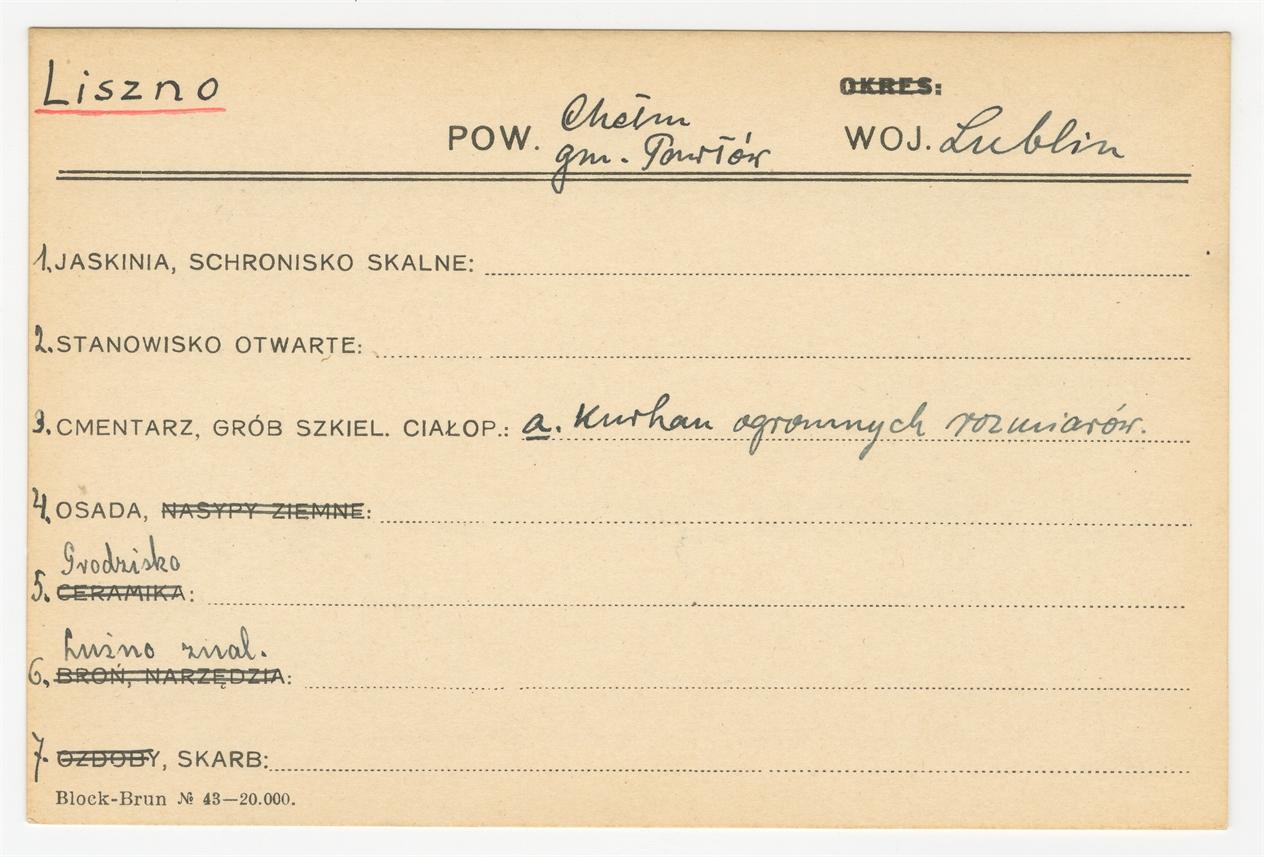 Liszno
OKRES:
POW. Chełm
gm. Pawłów
WOJ. Lublin
1. JASKINIA, SCHRONISKO SKALNE:
2. STANOWISKO OTWARTE:
3. CMENTARZ, GRÓB SZKIEL. CIAŁOP.: a. Kurhan ogromnych rozmiarów.
4. OSADA, NASYPY ZIEMNE:
Grodzisko
5. CERAMIKA:
Luźno znal.
6. BROŃ, NARZĘDZIA:
7. OZDOBY, SKARB:
Block-Brun № 43—20.000.